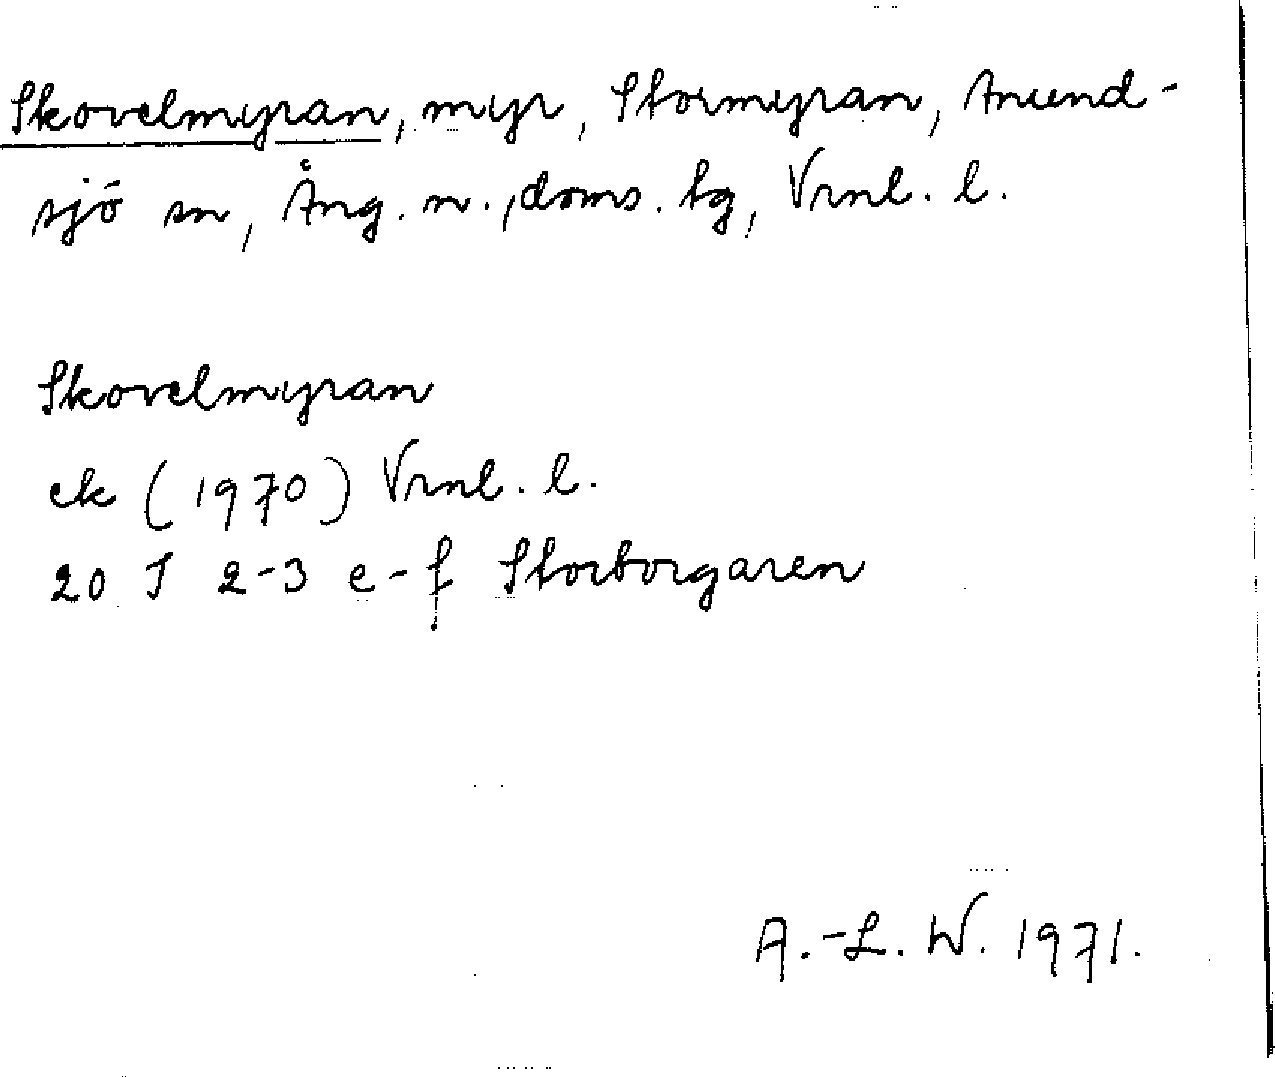 Skovelmyran, myr, Stormyran, Anund-
sjö sn, Ång. n., doms. tg, Vrnl. l.
Skovelmyran
ek (1970) Vrnl. l.
20 J 2-3 e-f Storborgaren
A.-L. W. 1971.